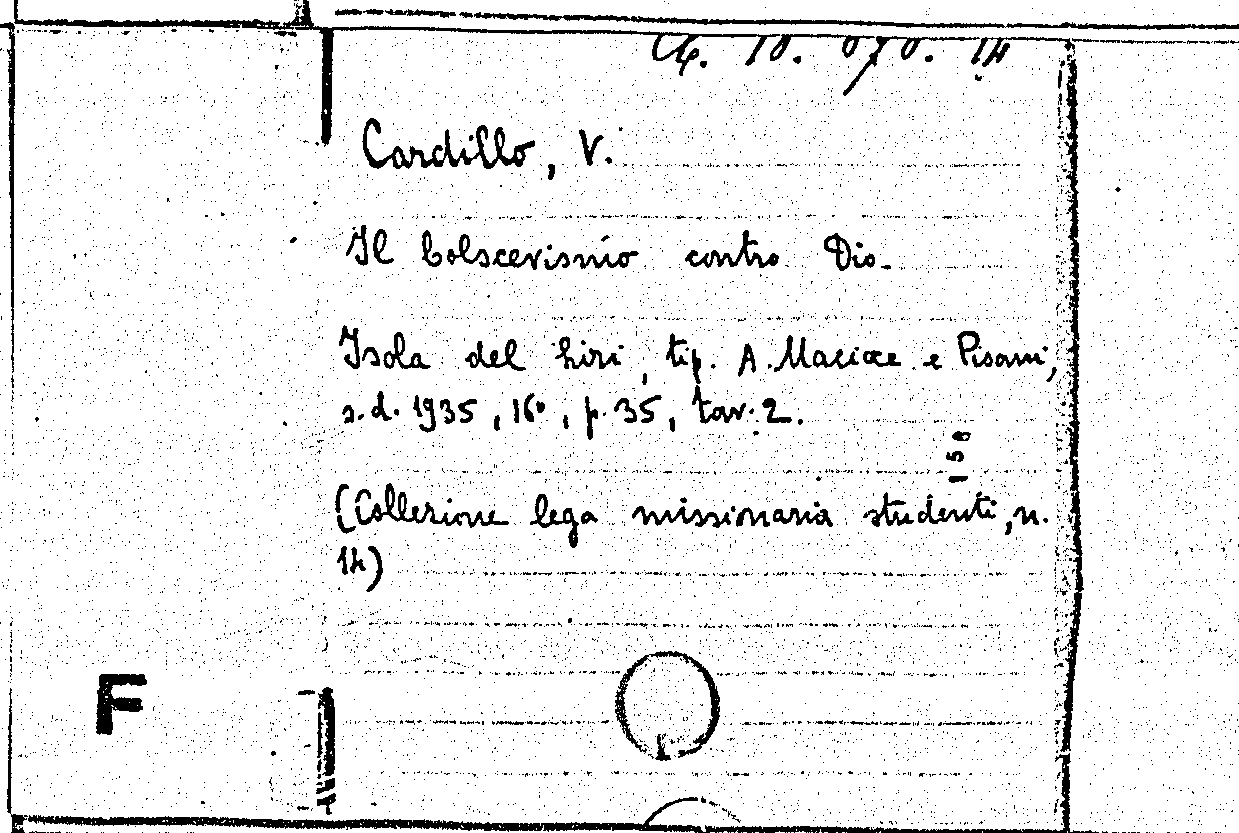 10. 070. 14
Cardillo, V.
Il bolscevismo contro Dio.
Isola del Liri, tip. A. Macioce e Pisani,
s.d. 1935, 16º, p. 35, tav. 2.
158
(Collezione lega missionaria studenti, n.
14)
F